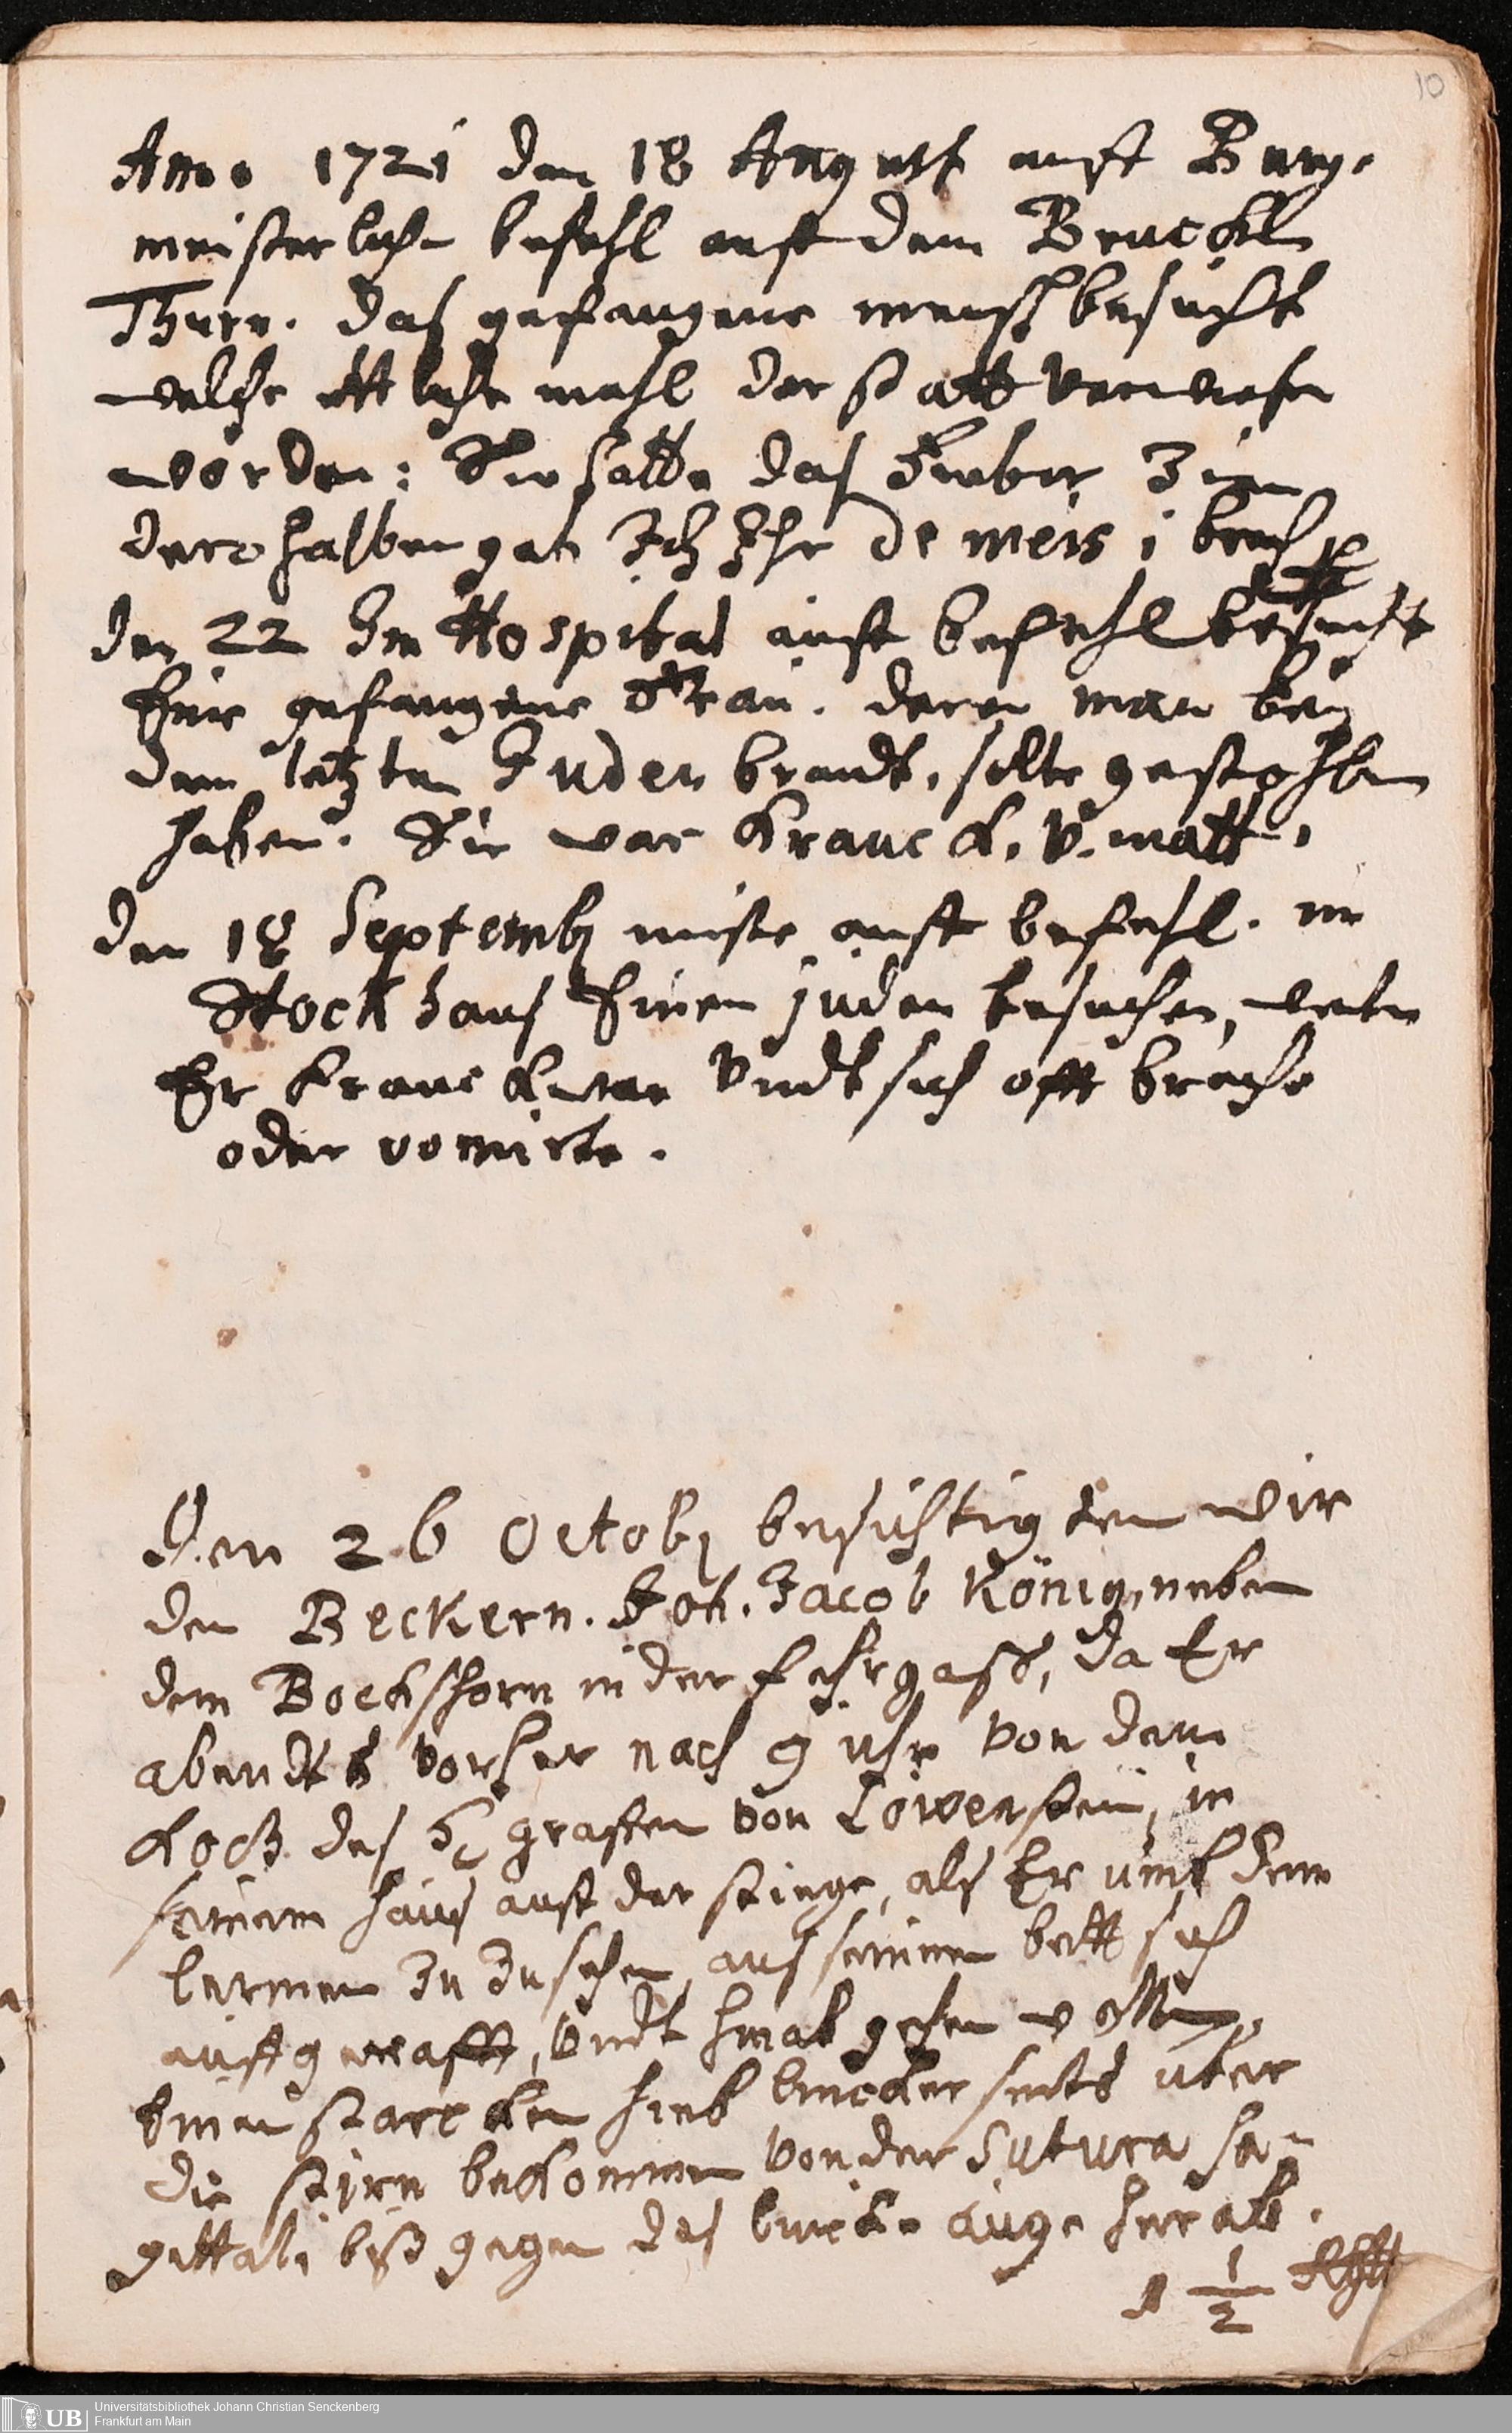 10
Anno 1721 den 18 August auff Burge
meisterlichn befehl auff dem Brucken
Thurn. das gefangene mensch besucht
welche ettliche mahl der statt verwiesen
worden: Sie hatte das Fieber
derohalben gab Ich Ihr de
den 22 Im Hospital auff befehl besucht
Eine gefangene Frau. deren man bey
dem letzten Juden brandt, solte gestohlen
haben. Sie war Kranck. v. matt.
den 18 Septemb muste auff befehl. im
Stockhaus Einen juden besuchen,
Er kranck war Undt sich offt breche
oder vomirte.
Den 26 Octob besichtigten wir
den Beckern. Joh. Jacob König, neben
dem Bockshorn in der fahrgass, da Er
abendts vorher nach 9 uhr von dem
Koch des H graffen von Löwenstein, in
seinem haus auff der stiege, als Er umb dem
lermen zu zusehen, aus seinem bett sich
auffgerafft, undt hinab gehen wollen,
Einen starcken hieb lincker seits uber
die stirn bekommen von der Sutura sa-
gittali biß gegen das lincke auge herab.
1 1/2
Universitätsbibliothek Johann Christian Senckenberg
Frankfurt am Main
UB